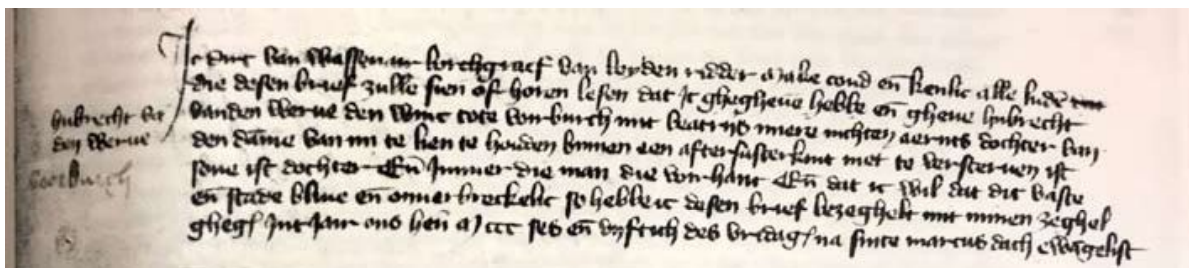 Ic Dirc van Wassenair borchgraef van leyden ridder make cond en̄ kenlic alleludē
die desen brief zullē sien of horen lesen dat Ic ghegheuē hebbe en̄ gheue hubrecht
hubrecht vā
den werue
voorburch
vanden werue den wint tote voirburch mit beatrijs miere nichten aernts dochter van
den dāme van mi te lien te houden binnen een aftersusterkint niet te versteruen ist
sone ist dochter En̄ Jmmer die man die voirhant En̄ dat ic wil dat dit vaste
en̄ stade bliue en̄ onuerbrekelic so hebbe ic desen brief bezeghelt mit minen zeghel
ghegh Jnt Jair ons herē M ccc ses en̄ vijftich des vridagh na sinte marcus dach ewāgelist